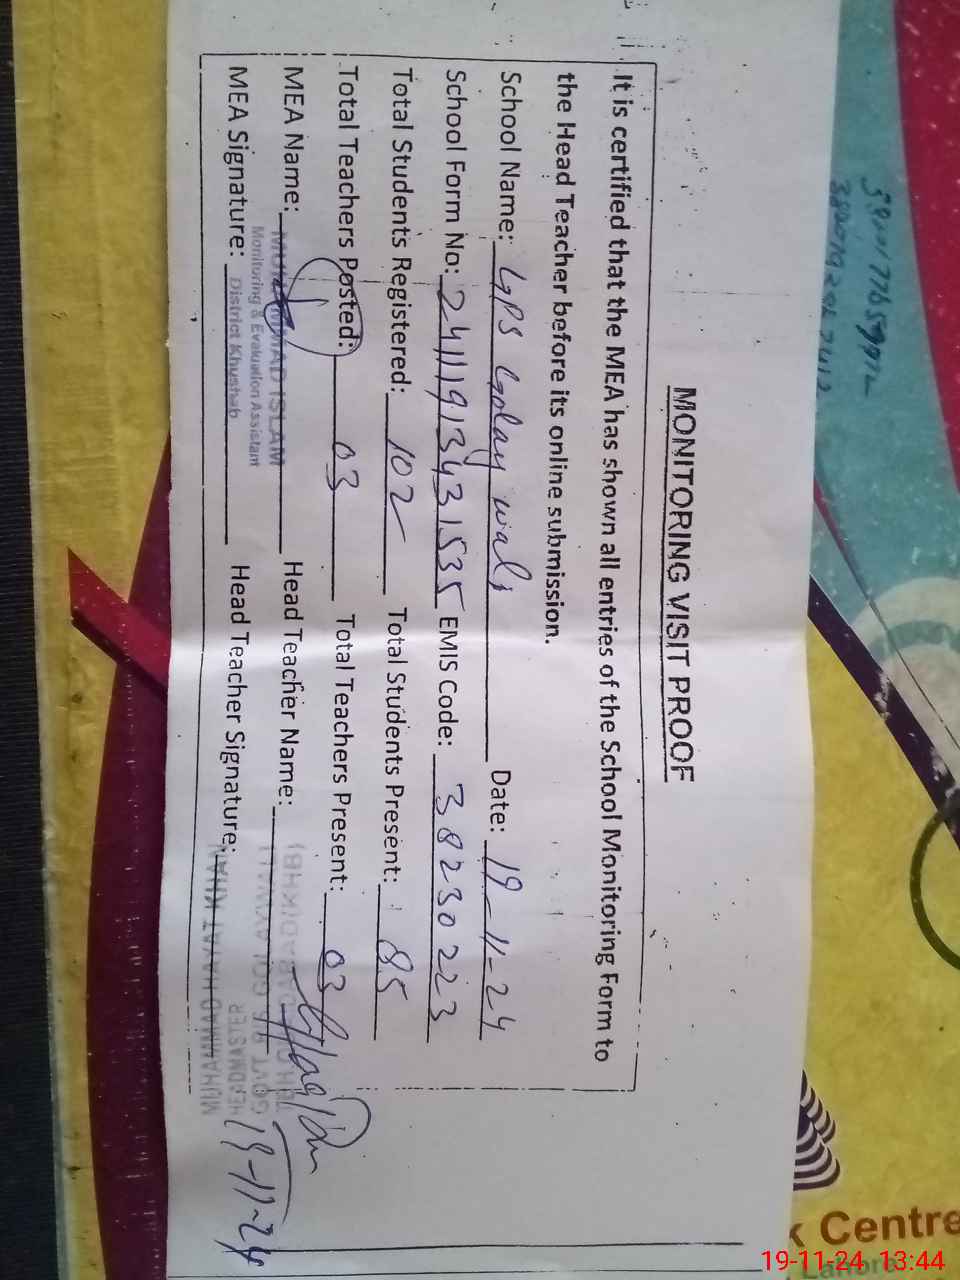 MONITORING VISIT PROOF
It is certified that the MEA has shown all entries of the School Monitoring Form to
the Head Teacher before its online submission.
School Name: GPS Golay wali Date: 19-11-24
School Form No: 24111913431535 EMIS Code: 38230223
Total Students Registered: 102 Total Students Present: 85
Total Teachers Posted: 03 Total Teachers Present: 03
MEA Name: MUHAMMAD ISLAM Head Teacher Name:
Monitoring & Evaluation Assistant
MEA Signature: District Khushab Head Teacher Signature:
MUHAMMAD HAYAT KHAN
HEADMASTER
GOVT P/S GOLAY WALI
19-11-24
k Centre
Lahore
19-11-24 13:44